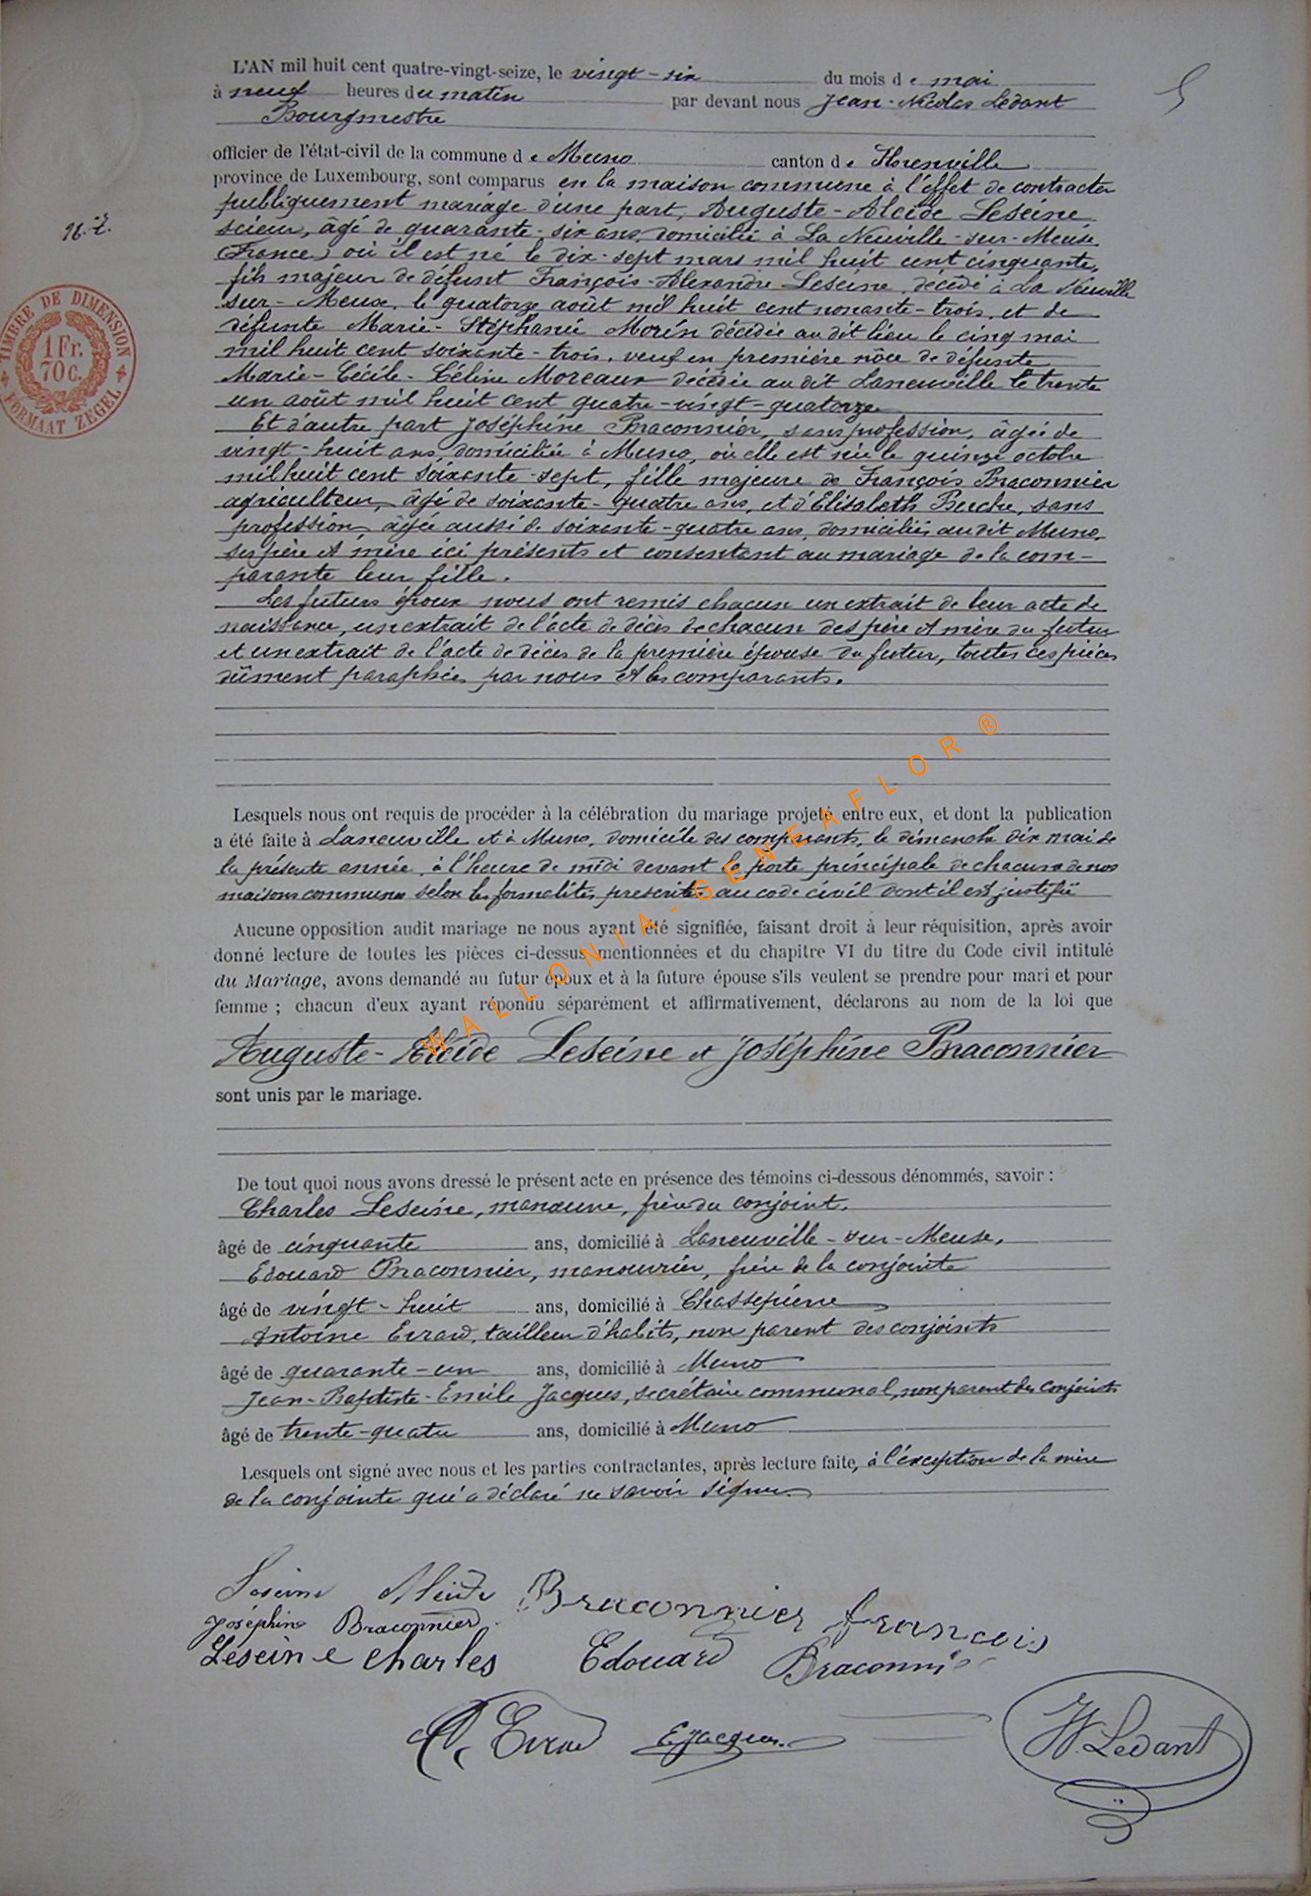 L'AN mil huit cent quatre-vingt-seize, le vingt-six du mois de mai
à neuf heures du matin par devant nous Jean-Nicolas Ledant
Bourgmestre
officier de l'état-civil de la commune de Muno canton de Florenville
province de Luxembourg, sont comparus en la maison commune à l'effet de contracter
publiquement mariage d'une part, Auguste-Alcide Leseine
scieur, âgé de quarante-six ans, domicilié à La Neuville-sur-Meuse
(France) où il est né le dix-sept mars mil huit cent cinquante,
fils majeur de défunt François-Alexandre Leseine, décédé à La Neuville
sur-Meuse, le quatorze août mil huit cent nonante-trois, et de
défunte Marie-Stéphanie Morin décédée au dit lieu le cinq mai
mil huit cent soixante-trois, veuf en première nôce de défunte
Marie-Cécile-Céline Moreaux décédée au dit Laneuville le trente
un août mil huit cent quatre-vingt-quatorze
Et d'autre part Joséphine Braconnier, sans profession, âgée de
vingt-huit ans, domiciliée à Muno, où elle est née le quinze octobre
mil huit cent soixante-sept, fille majeure de François Braconnier
agriculteur, âgé de soixante-quatre ans, et d'Elisabeth sans
profession, âgée aussi de soixante-quatre ans, domiciliés au dit Muno,
ses père et mère ici présents et consentant au mariage de la com-
parante leur fille.
Les futurs époux nous ont remis chacun un extrait de leur acte de
naissance, un extrait de l'acte de décès de chacun des père et mère du futur
et un extrait de l'acte de décès de la première épouse du futur, toutes ces pièces
dûment paraphées par nous et les comparants.
Lesquels nous ont requis de procéder à la célébration du mariage projeté entre eux, et dont la publication
a été faite à Laneuville et à Muno, domicile des comparants, le dimanche dix mai de
la présente année, à l'heure de midi devant la porte principale de chacune de nos
maisons communes selon les formalités prescrites au code civil dont il est justifié
Aucune opposition audit mariage ne nous ayant été signifiée, faisant droit à leur réquisition, après avoir
donné lecture de toutes les pièces ci-dessus mentionnées et du chapitre VI du titre du Code civil intitulé
du Mariage, avons demandé au futur époux et à la future épouse s'ils veulent se prendre pour mari et pour
femme ; chacun d'eux ayant répondu séparément et affirmativement, déclarons au nom de la loi que
Auguste-Alcide Leseine et Joséphine Braconnier
sont unis par le mariage.
De tout quoi nous avons dressé le présent acte en présence des témoins ci-dessous dénommés, savoir :
Charles Leseine, frère du conjoint,
âgé de cinquante ans, domicilié à Laneuville-sur-Meuse,
Edouard Braconnier, manouvrier, frère de la conjointe
âgé de vingt-huit ans, domicilié à Chassepierre
Antoine Evrard, tailleur d'habits, non parent des conjoints
âgé de quarante-un ans, domicilié à Muno
Jean-Baptiste-Emile Jacques, secrétaire communal, non parent des conjoints
âgé de trente-quatre ans, domicilié à Muno
Lesquels ont signé avec nous et les parties contractantes, après lecture faite, à l'exception de la mère
de la conjointe qui a déclaré ne savoir signer.
Leseine Alcide Braconnier François
Joséphine Braconnier
Leseine Charles Edouard Braconnier
A. Evrard E. Jacques. Ledant
TIMBRE DE DIMENSION
1 Fr.
70 c.
FORMAAT ZEGEL
WALLONIA-GENEAFLOR ®